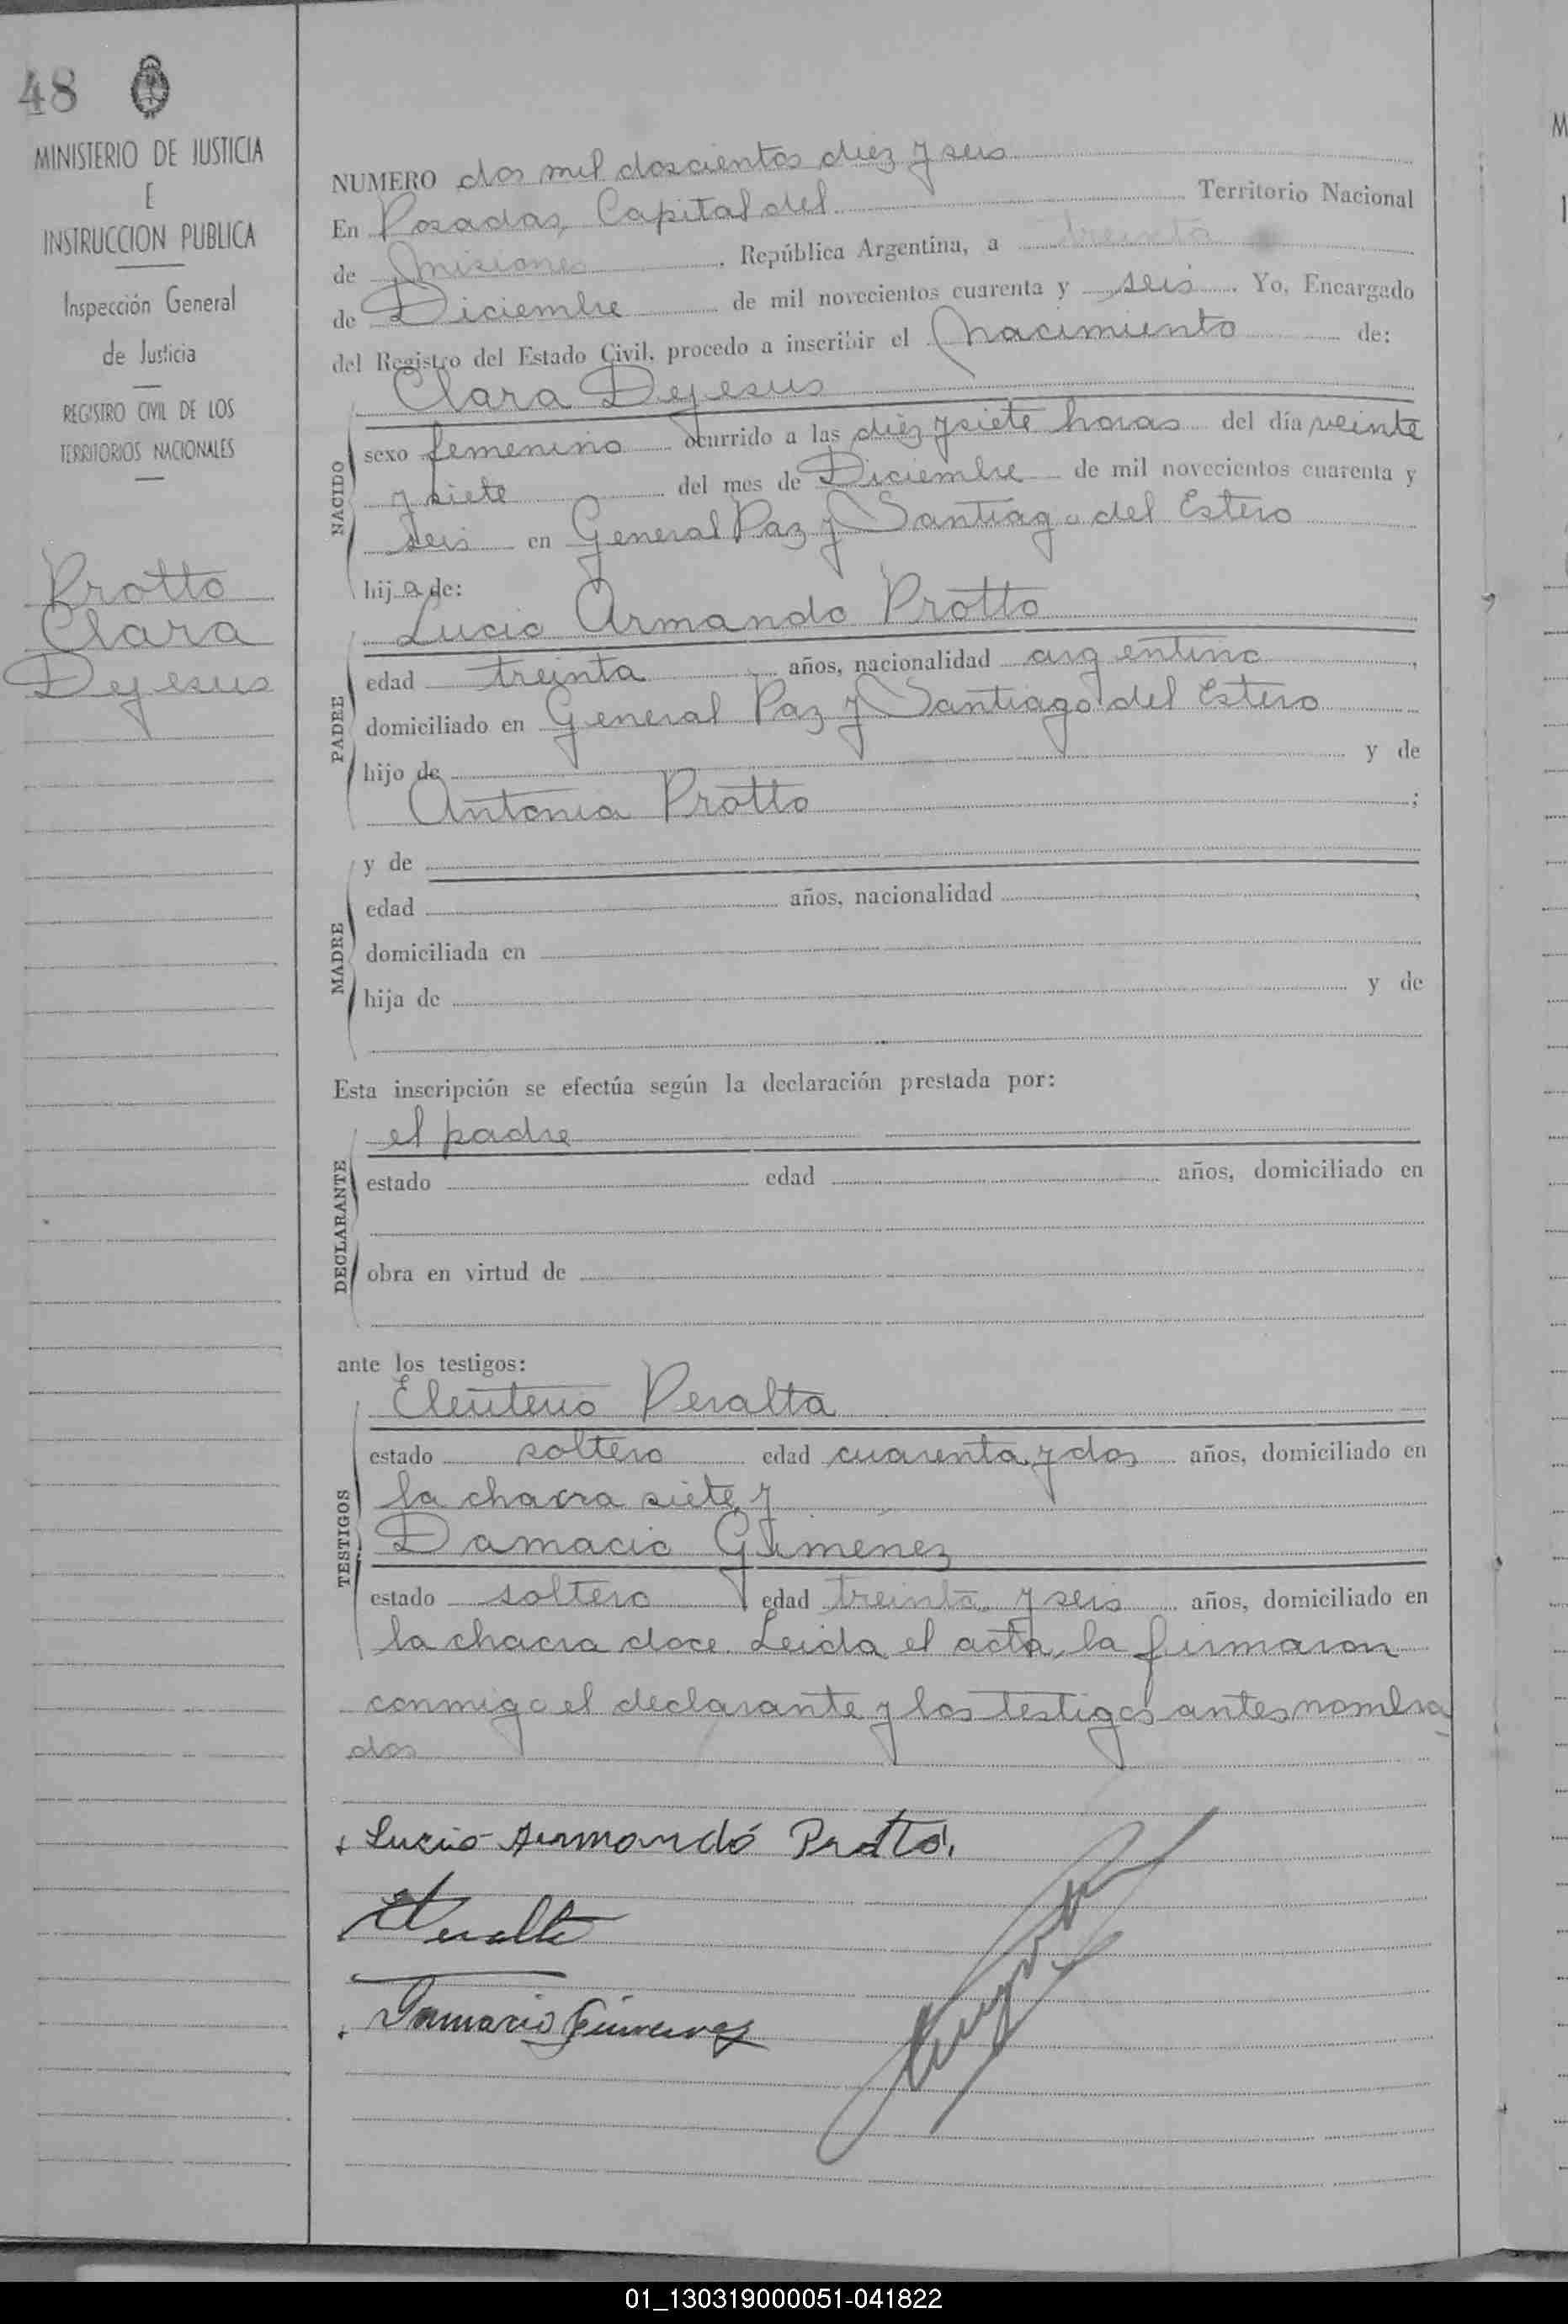 48
MINISTERIO DE JUSTICIA
E
INSTRUCCION PUBLICA
Inspección General
de Justicia
REGISTRO CIVIL DE LOS
TERRITORIOS NACIONALES
Protto
Clara
Dejesus
NUMERO dos mil doscientos diez y seis
En Posadas, Capital del Territorio Nacional
de Misiones, República Argentina, a treinta
de Diciembre de mil novecientos cuarenta y seis. Yo, Encargado
del Registro del Estado Civil, procedo a inscribir el Nacimiento de:
Clara Dejesus
NACIDO
sexo femenino ocurrido a las diez y siete horas del día veinte
y siete del mes de Diciembre de mil novecientos cuarenta y
seis en General Paz y Santiago del Estero
hija de:
Lucio Armando Protto
PADRE
edad treinta años, nacionalidad argentino,
domiciliado en General Paz y Santiago del Estero
hijo de y de
Antonia Protto ;
MADRE
y de
edad años, nacionalidad ,
domiciliada en
hija de y de
Esta inscripción se efectúa según la declaración prestada por:
el padre
DECLARANTE
estado edad años, domiciliado en
obra en virtud de
ante los testigos:
Eleuterio Peralta
TESTIGOS
estado soltero edad cuarenta y dos años, domiciliado en
la chacra siete y
Damacio Giménez
estado soltero edad treinta y seis años, domiciliado en
la chacra doce. Leida el acta, la firmaron
conmigo el declarante y los testigos antes nombra
dos
Lucio Armando Protto
EPeralta
Damacio Gimenez
01_130319000051-041822